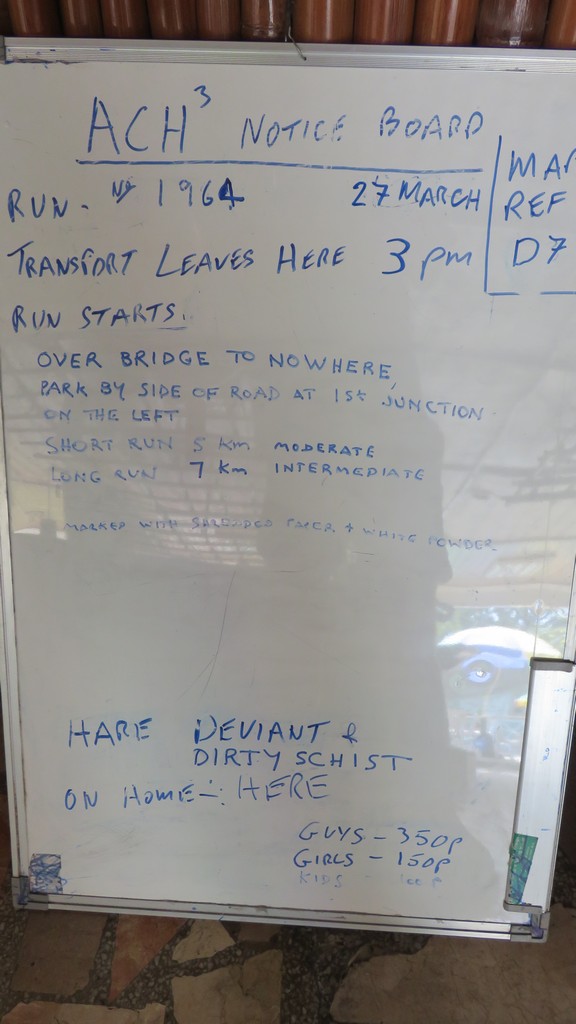 ACH³ NOTICE BOARD
RUN - Nº 1964 27 MARCH
MAP
REF
D7
TRANSPORT LEAVES HERE 3 pm
RUN STARTS.
OVER BRIDGE TO NOWHERE,
PARK BY SIDE OF ROAD AT 1st JUNCTION
ON THE LEFT
SHORT RUN 5 Km MODERATE
LONG RUN 7 Km INTERMEDIATE
MARKED WITH SHREDDED PAPER + WHITE POWDER
HARE DEVIANT &
DIRTY SCHIST
ON HOME -: HERE
GUYS - 350p
GIRLS - 150p
KIDS - 100p